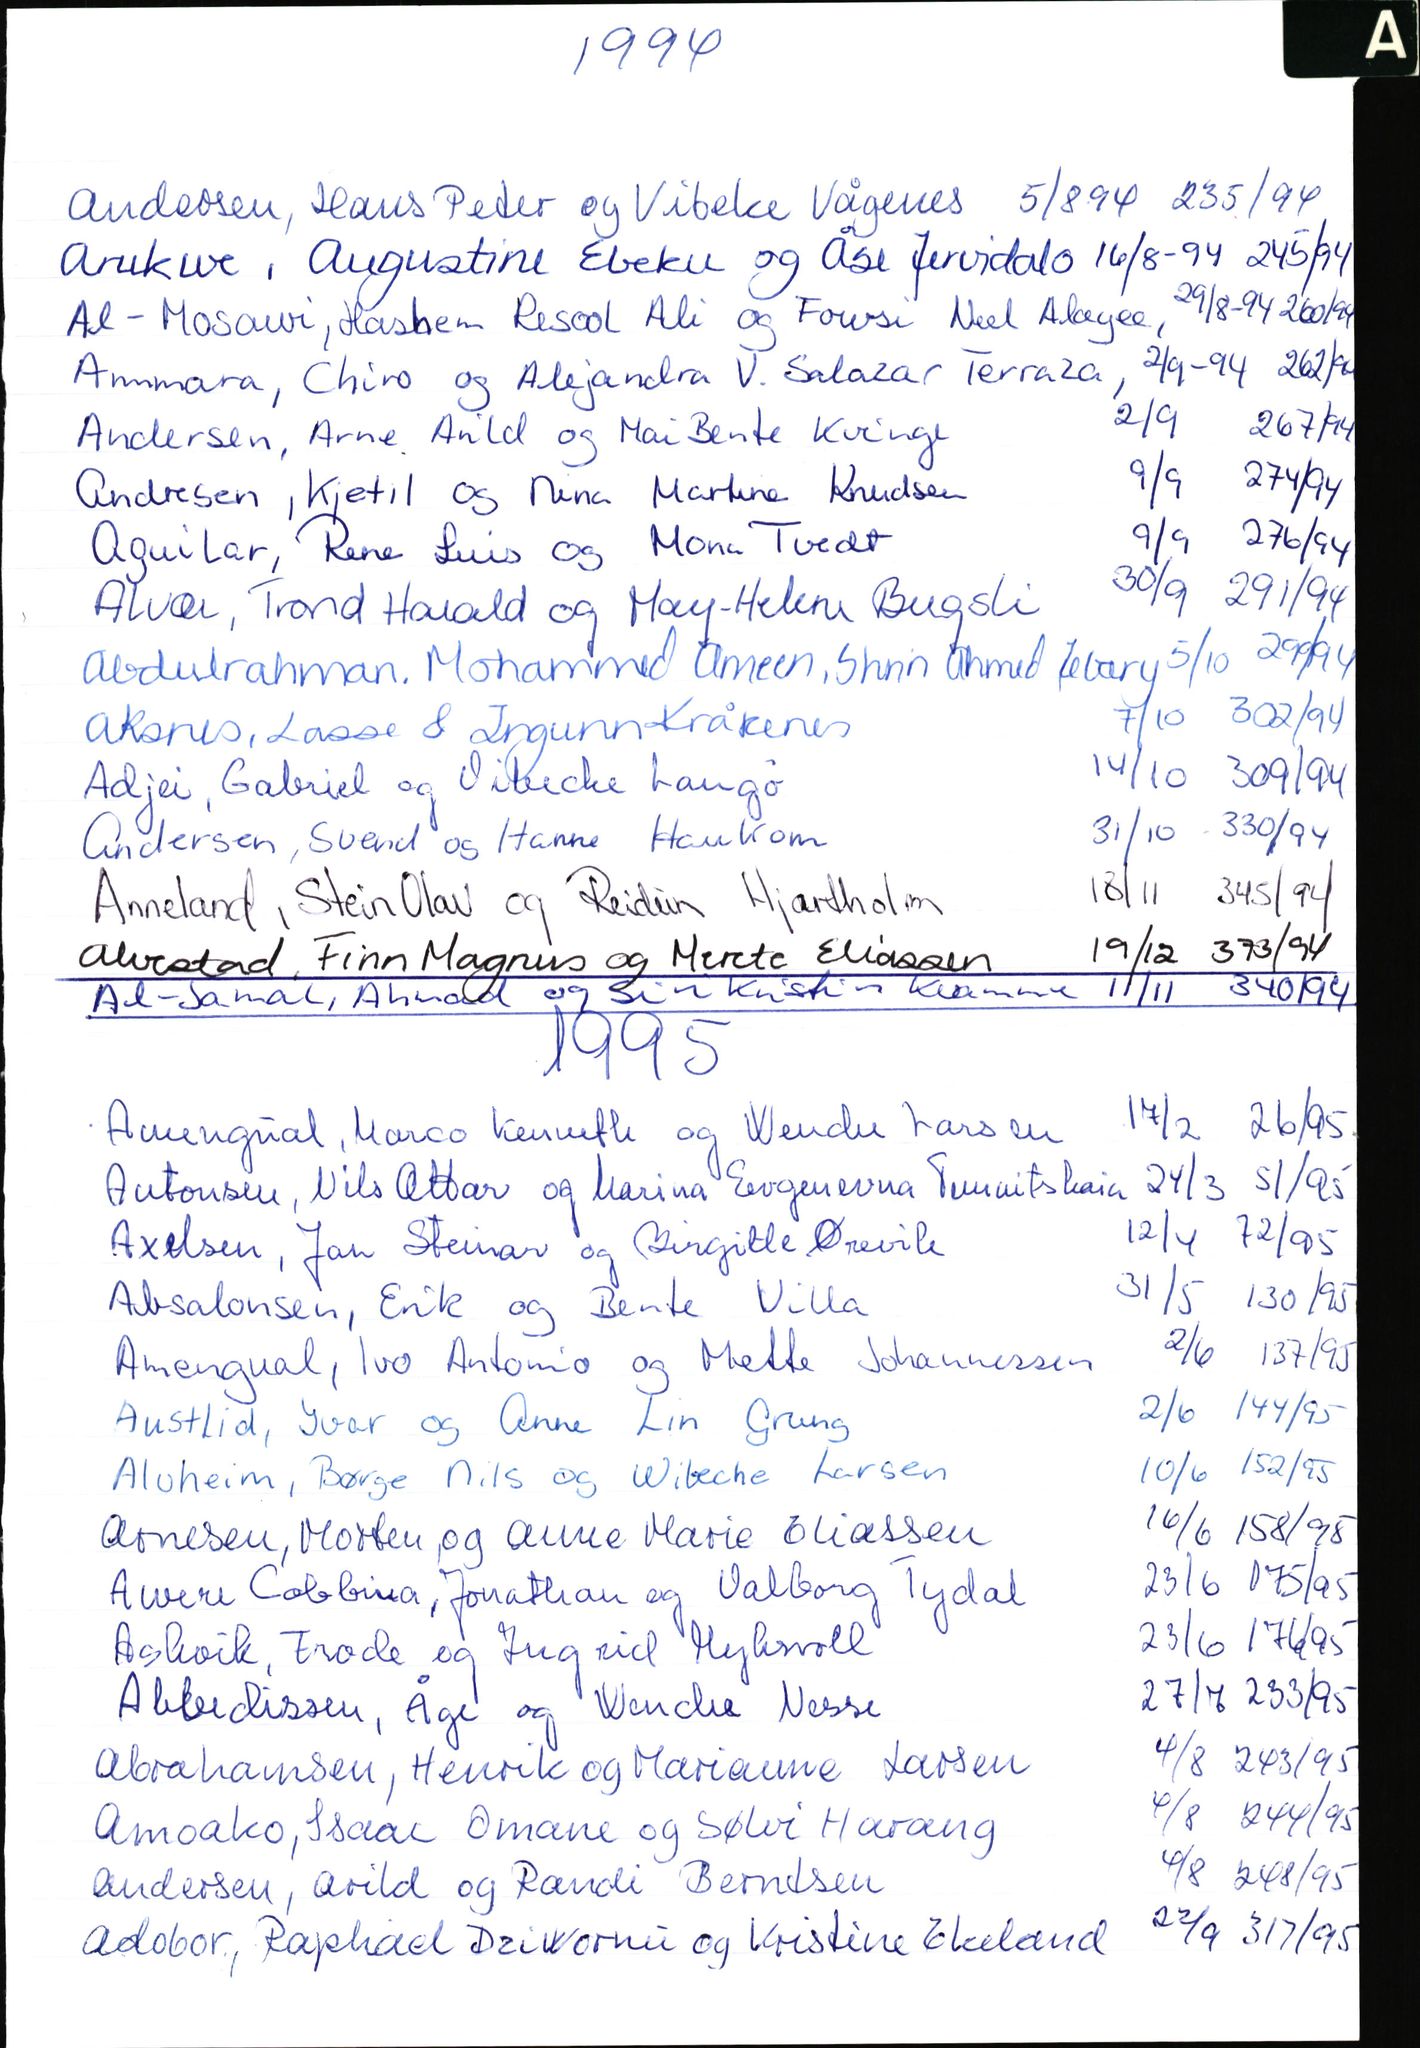 A
1994
Andersen, Hans Peter og Vibeke Vågenes 5/8 94 235/94
Arukwe, Augustine Ebeku og Åse Jervidalo 16/8-94 245/94
Al-Mosawi, Hashem Resool Ali og Fowsi Neel Alayee, 29/8-94 260/94
Ammara, Chiro og Alejandra V. Salazar Terraza, 2/9-94 262/94
Andersen, Arne Arild og Mai Bente Kvinge 2/9 267/94
Andresen, Kjetil og Nina Martine Knudsen 9/9 274/94
Aguilar, Rene Luis og Mona Tvedt 9/9 276/94
Alvær, Trond Harald og May-Helene Bugsli 30/9 291/94
Abdulrahman. Mohammed Ameen, Shrin Ahmed Zebary 5/10 299/94
Aksnes, Lasse & Ingunn Kråkenes 7/10 302/94
Adjei, Gabriel og Vibecke Langö 14/10 309/94
Andersen, Svend og Hanne Haukom 31/10 330/94
Anneland, Stein Olav og Reidun Hjartholm 18/11 345/94
Alvestad, Finn Magnus og Merete Eliassen 19/12 373/94
Al-Jamal, Ahmad og Siri Kristin Kramme 11/11 340/94
1995
Amengual, Marco Kenneth og Wenche Larsen 17/2 26/95
Antonsen, Nils Ottar og Marina Evgenevna 24/3 51/95
Axelsen, Jan Steinar og Birgitte Ørevik 12/4 72/95
Absalonsen, Erik og Bente Villa 31/5 130/95
Amengual, Ivo Antonio og Mette Johannessen 2/6 137/95
Austlid, Yvar og Anne Lin Grung 2/6 144/95
Alvheim, Børge Nils og Wibeche Larsen 10/6 152/95
Arnesen, Morten og Anne Marie Eliassen 16/6 158/95
Awere Cobbina, Jonathan og Valborg Tydal 23/6 175/95
Askvik, Frode og Ingrid Myksvoll 23/6 176/95
Abbedissen, Åge og Wenche Nesse 27/7 233/95
Abrahamsen, Henrik og Marianne Larsen 4/8 243/95
Amoako, Isaac Omane og Sølvi Harang 4/8 244/95
Andersen, Arild og Randi Berndsen 4/8 248/95
Adobor, Raphael Dzikornu og Kristine Ekeland 22/9 317/95